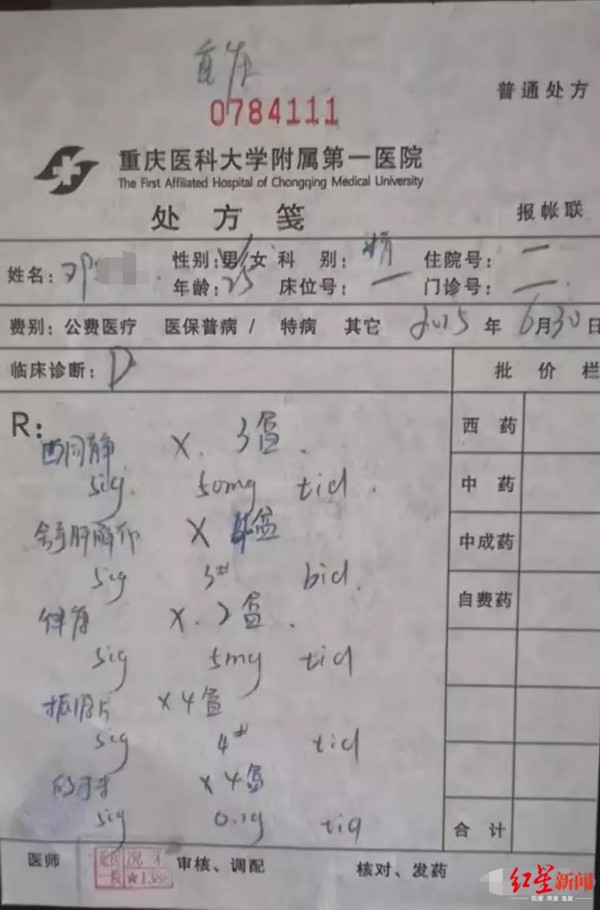 0784111
普通处方
重庆医科大学附属第一医院
The First Affiliated Hospital of Chongqing Medical University
处方笺
报帐联
姓名：邓 性别：男/女 科 别：精 住院号：一
年龄：25 床位号：一 门诊号：一
费别：公费医疗 医保普病 / 特病 其它 2015 年 6月30日
临床诊断：D
批价栏
R：
西同静 X. 3盒.
sig. 50mg tid.
舒肝解郁 X 4盒
sig 3# bid.
X. 2盒.
sig 5mg tid
X4盒
sig 4# tid
X4盒
sig tid
西药
中药
中成药
自费药
合计
医师
审核、调配
核对、发药
红星新闻
锐度 深度 温度